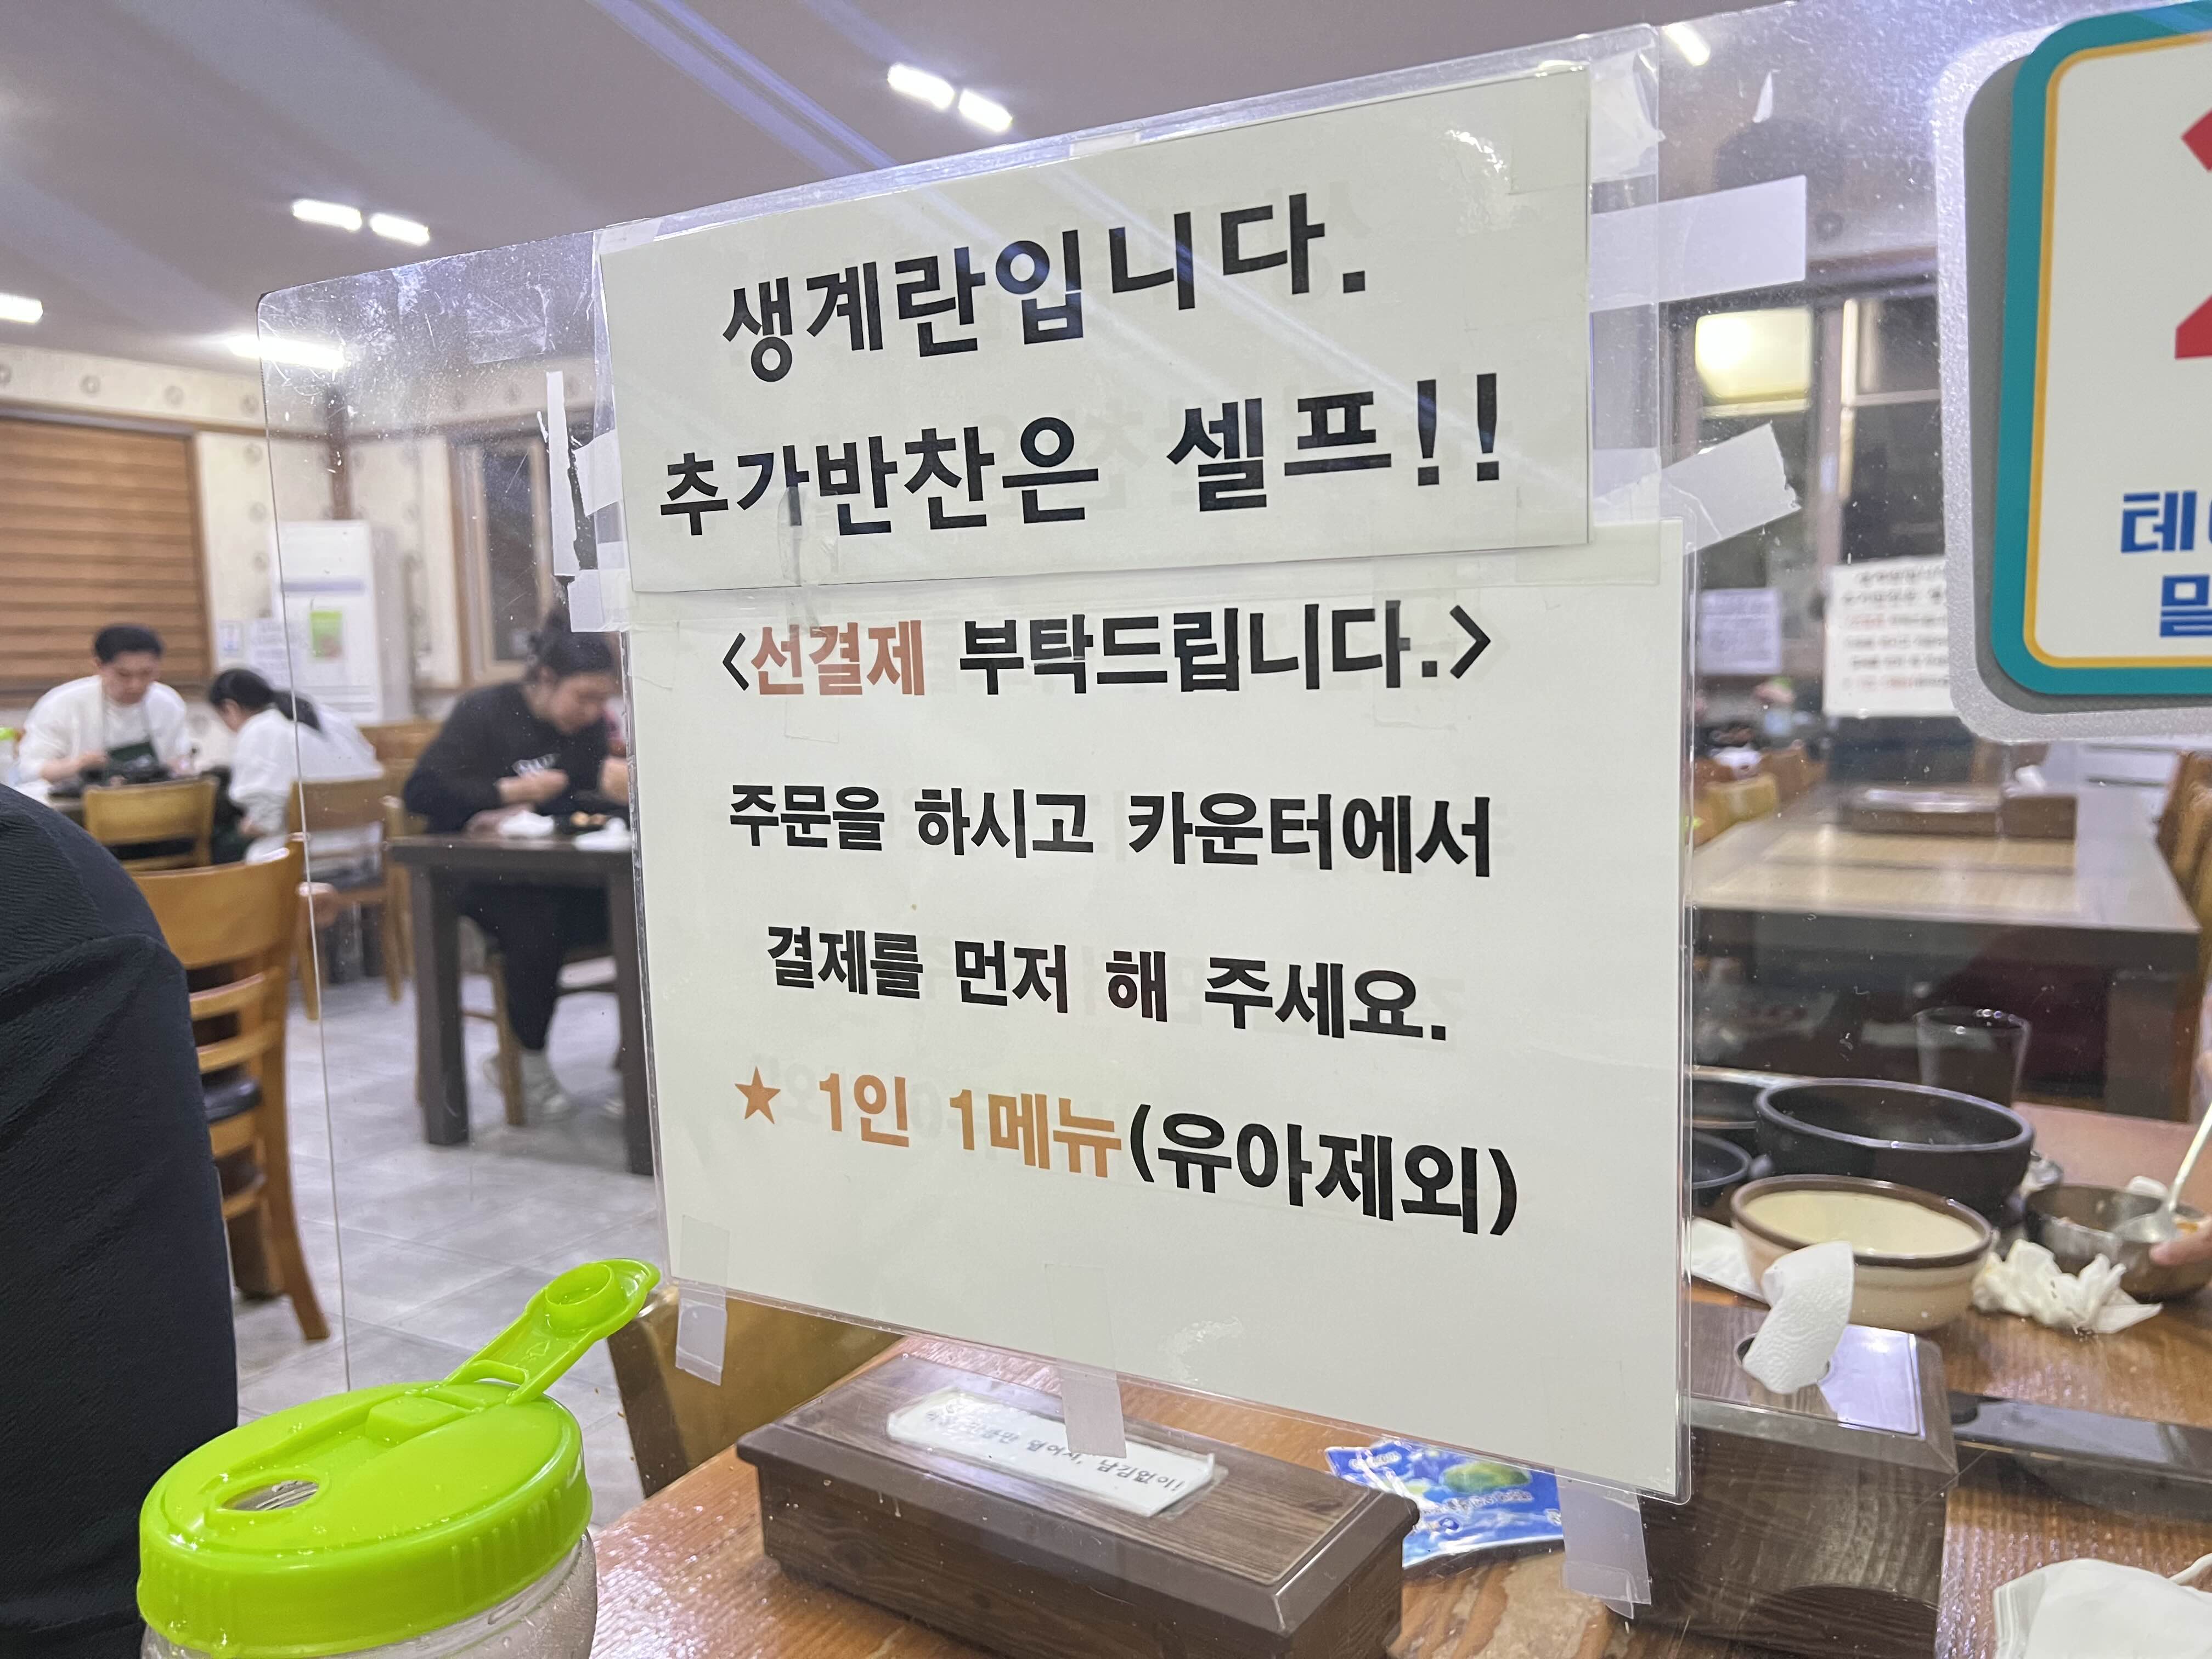 생계란입니다.
추가반찬은 셀프!!
<선결제 부탁드립니다.>
주문을 하시고 카운터에서
결제를 먼저 해 주세요.
★ 1인 1메뉴(유아제외)
남김없이!
테
밀